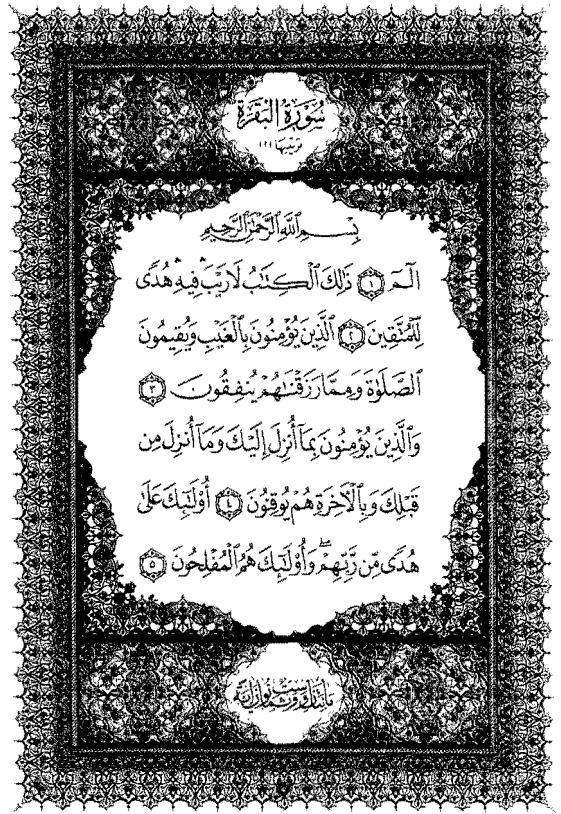 سُورَةُ البَقَرَةِ
ترتيبها (٢)
بِسْمِ ٱللَّهِ ٱلرَّحْمَٰنِ ٱلرَّحِيمِ
الٓمٓ ١ ذَٰلِكَ ٱلْكِتَٰبُ لَا رَيْبَ ۛ فِيهِ ۛ هُدًى
لِّلْمُتَّقِينَ ٢ ٱلَّذِينَ يُؤْمِنُونَ بِٱلْغَيْبِ وَيُقِيمُونَ
ٱلصَّلَوٰةَ وَمِمَّا رَزَقْنَٰهُمْ يُنفِقُونَ ٣
وَٱلَّذِينَ يُؤْمِنُونَ بِمَآ أُنزِلَ إِلَيْكَ وَمَآ أُنزِلَ مِن
قَبْلِكَ وَبِٱلْءَاخِرَةِ هُمْ يُوقِنُونَ ٤ أُو۟لَٰٓئِكَ عَلَىٰ
هُدًى مِّن رَّبِّهِمْ ۖ وَأُو۟لَٰٓئِكَ هُمُ ٱلْمُفْلِحُونَ ٥